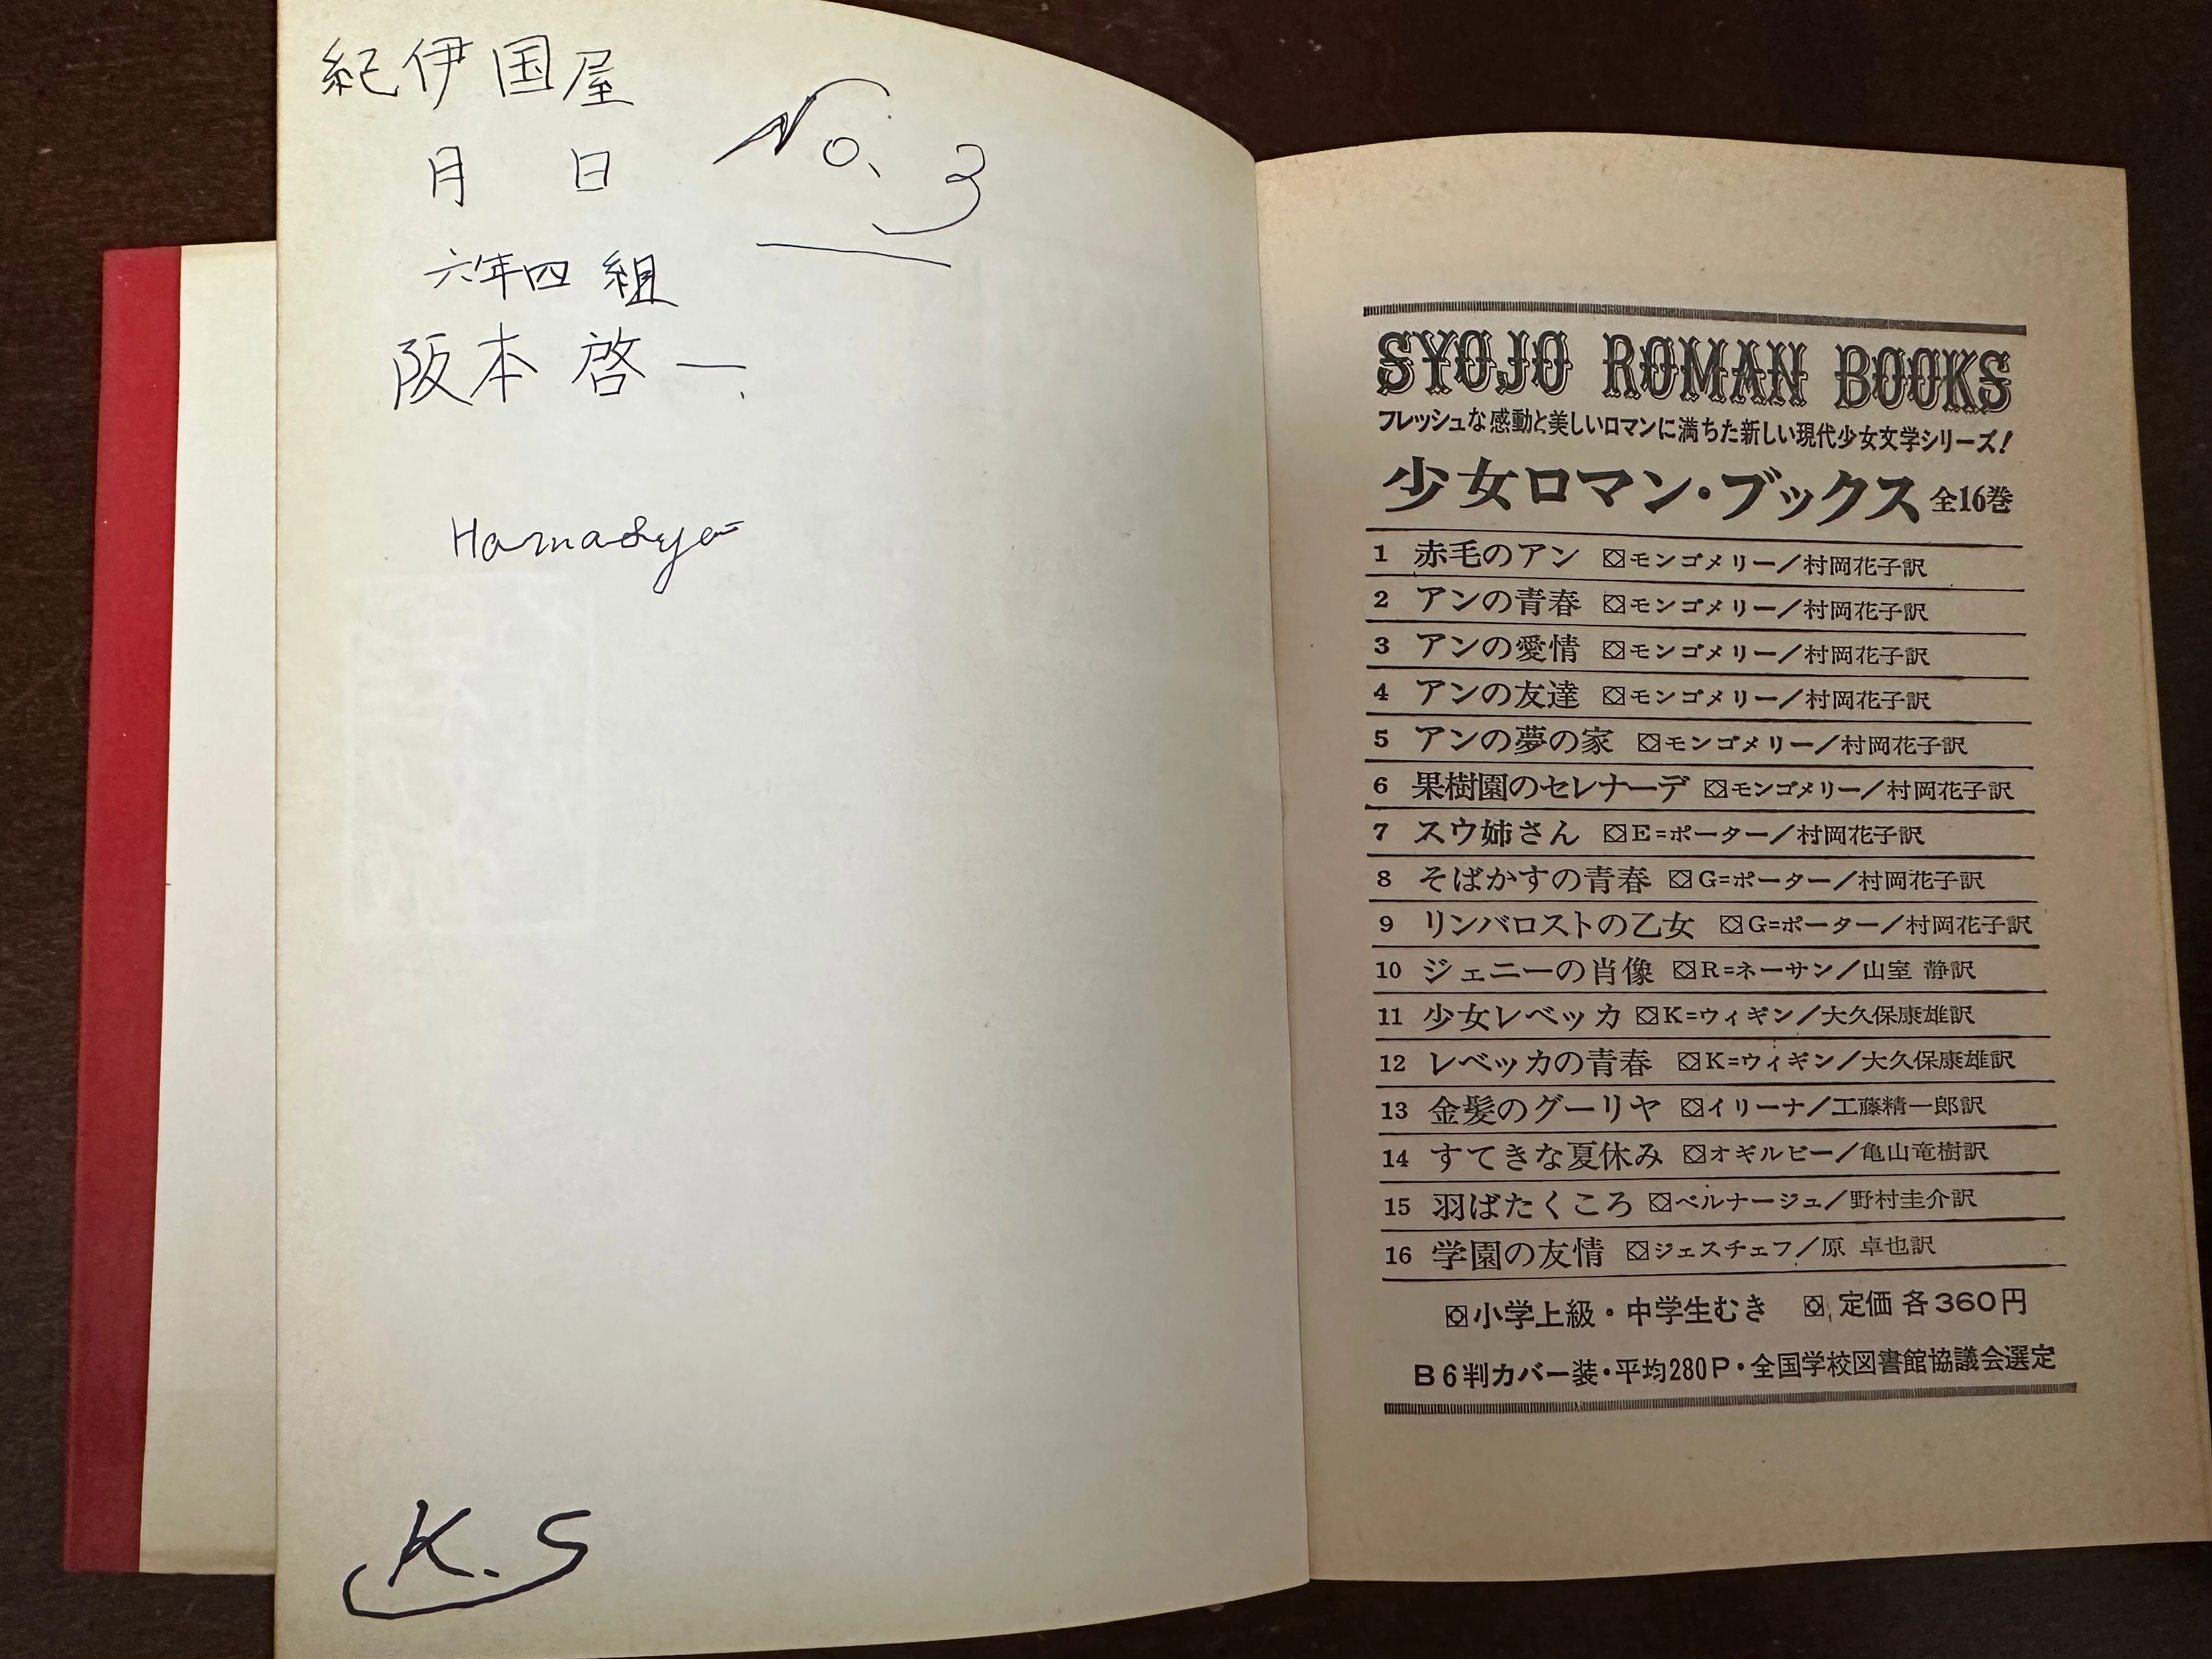 紀伊国屋
No. 3
月 日
六年四組
阪本啓一
K.S
SYOJO ROMAN BOOKS
フレッシュな感動と美しいロマンに満ちた新しい現代少女文学シリーズ!
少女ロマン・ブックス 全16巻
1 赤毛のアン モンゴメリー/村岡花子訳
2 アンの青春 モンゴメリー/村岡花子訳
3 アンの愛情 モンゴメリー/村岡花子訳
4 アンの友達 モンゴメリー/村岡花子訳
5 アンの夢の家 モンゴメリー/村岡花子訳
6 果樹園のセレナーデ モンゴメリー/村岡花子訳
7 スウ姉さん E=ポーター/村岡花子訳
8 そばかすの青春 G=ポーター/村岡花子訳
9 リンバロストの乙女 G=ポーター/村岡花子訳
10 ジェニーの肖像 R=ネーサン/山室 静訳
11 少女レベッカ K=ウィギン/大久保康雄訳
12 レベッカの青春 K=ウィギン/大久保康雄訳
13 金髪のグーリヤ イリーナ/工藤精一郎訳
14 すてきな夏休み オギルビー/亀山竜樹訳
15 羽ばたくころ ベルナージュ/野村圭介訳
16 学園の友情 ジェスチェフ/原 卓也訳
小学上級・中学生むき 定価 各360円
B6判カバー装・平均280P・全国学校図書館協議会選定